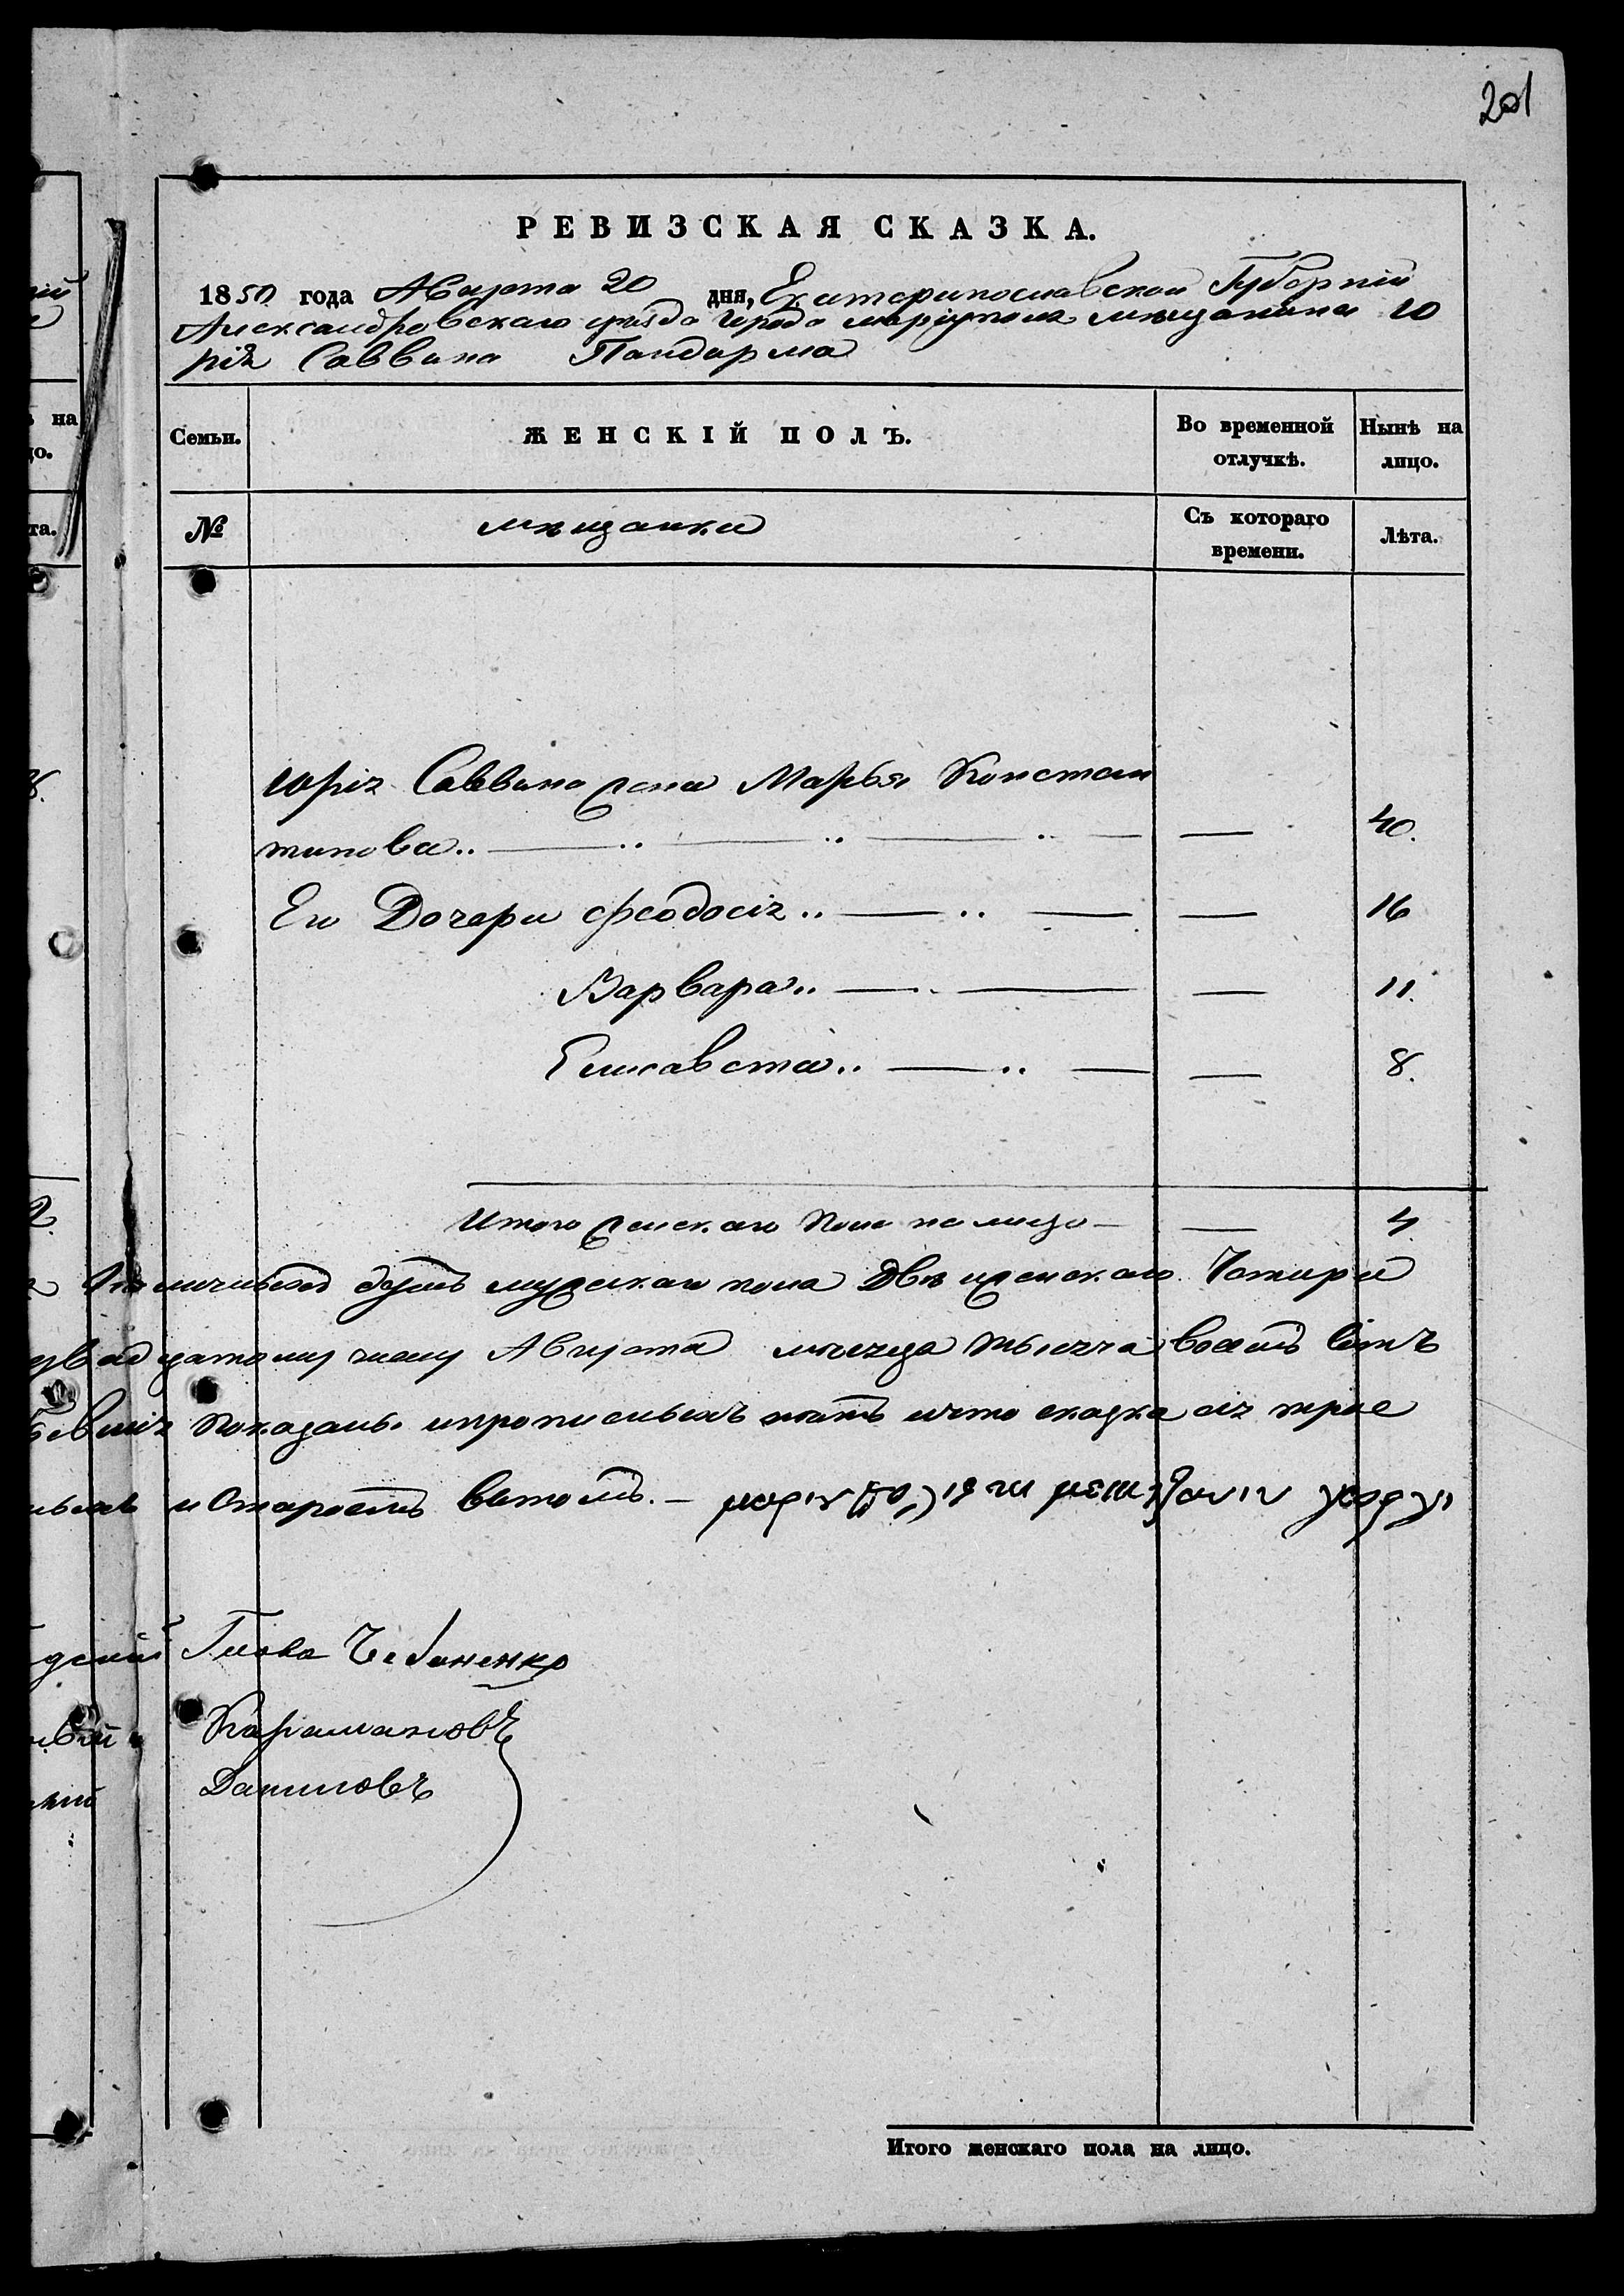 201
на
цо.
та.
РЕВИЗСКАЯ СКАЗКА.
1850 года Августа 20 дня, Екатеринославской Губернии
Александровскаго уѣзда города Маріуполя мѣщанина Ю
рія Саввина Пандарма
Семьи.
ЖЕНСКІЙ ПОЛЪ.
Во временной отлучкѣ.
Нынѣ на лицо.
№
мѣщанки
Съ котораго времени.
Лѣта.
Юрія Саввина жена Марья Констан
тинова.. — 40.
Ею Дочери Феодосія.. — 16
Варвара.. — 11.
Елисавета.. — 8.
Итого женскаго пола на лицо — 4
наличныхъ душъ мужскаго пола Двѣ и женскаго Четыре
двадцатому числу Августа мѣсяца тысяча восемь сотъ
показаны и прописныхъ нѣтъ и что сказка сія
и Старостъ въ томъ. —
Глова Чебаненко
Карамановъ
Даниловъ
Итого женскаго пола на лицо.